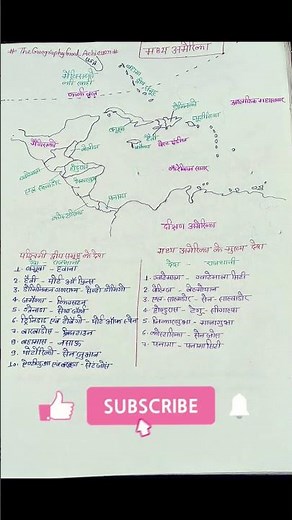 # The Geography Guru Achievers #
मध्य अमेरिका
USA
मैक्सिको
की खाड़ी
बहामास
कर्क वृत्त
अटलांटिक महासागर
मैक्सिको
क्यूबा
हैती
जमैका
कैरेबियन सागर
बेलीज
होंडुरास
पनामा
दक्षिण अमेरिका
पश्चिमी द्वीप समूह के देश
देश - राजधानी
1. क्यूबा - हवाना
2. हैती - पोर्ट ऑ प्रिन्स
3. डोमिनिकन गणराज्य - सेंटो डोमिंगो
4. जमैका - किंगस्टन
5. ग्रेनाडा - सेंट जॉर्ज
6. ट्रिनिडाड एवं टोबैगो - पोर्ट ऑफ स्पेन
7. बारबाडोस - ब्रिजटाउन
8. बहामास - नसाऊ
9. पोर्टोरिको - सेन जुआन
10. ऐन्टीगुआ एवं बरबुडा - सेंट जोंस
मध्य अमेरिका के मुख्य देश
देश - राजधानी
1. ग्वाटेमाला - ग्वाटेमाला सिटी
2. बेलिज - बेल्मोपान
3. एल साल्वाडोर - सेन साल्वाडोर
4. होण्डुरास - टेगुसीगाल्पा
5. निकारागुआ - मानागुआ
6. कोस्टारिका - सेन जोस
7. पनामा - पनामा सिटी
SUBSCRIBE